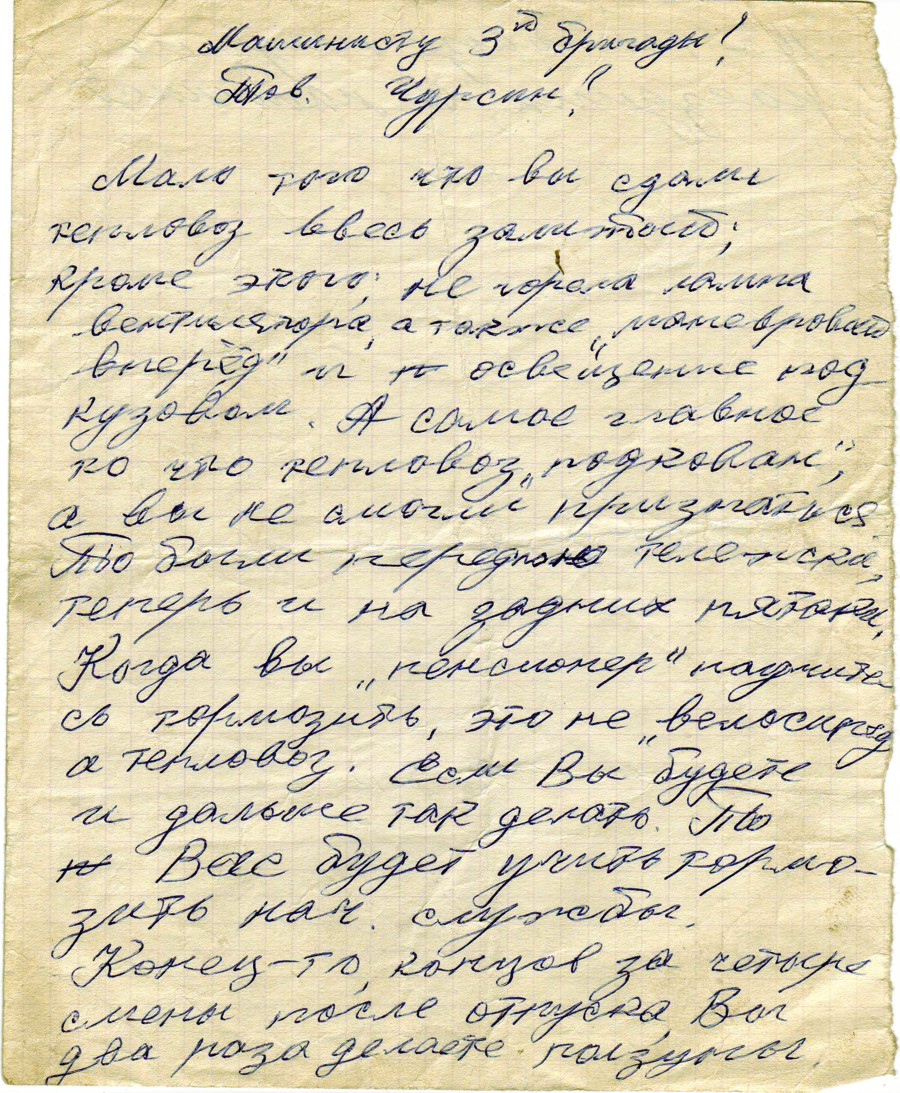 Машинисту 3ей бригады!
Тов. Чурсин!
Мало того что вы сдали
тепловоз ввесь залитый;
кроме этого; не горела лампа
вентилятора, а также „маневровый
вперёд" и освещение под
кузовом. А самое главное
то что тепловоз „подкован",
а вы не смогли признаться
То были передняя тележка,
теперь и на задних пятаки.
Когда вы „пенсионер" научите-
сь тормозить, это не „велосипед
а тепловоз. Если Вы будете
и дальше так делать. То
Вас будет учить тормо-
зить нач. службы.
Конец-то, концов за четыре
смены после отпуска, Вы
два раза делаете ползуны.